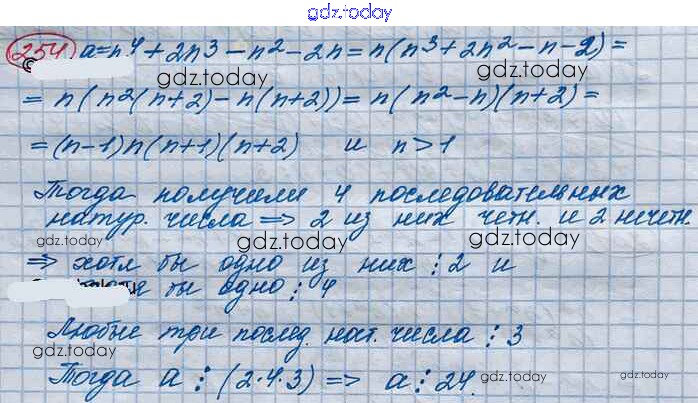 gdz.today
254 a=n⁴+2n³-n²-2n=n(n³+2n²-n-2)=
gdz.today gdz.today
=n(n²(n+2)-n(n+2))=n(n²-n)(n+2)=
=(n-1)n(n+1)(n+2) и n>1
gdz.today gdz.today
Тогда получили 4 последовательных
натур. числа ⇒ 2 из них четн. и 2 нечетн.
gdz.today gdz.today gdz.today
⇒ хотя бы одно из них ⋮ 2 и
бы одно ⋮ 4
Любые три послед. нат. числа ⋮ 3
gdz.today gdz.today
Тогда a ⋮ (2·4·3) ⇒ a ⋮ 24.
gdz.today gdz.today